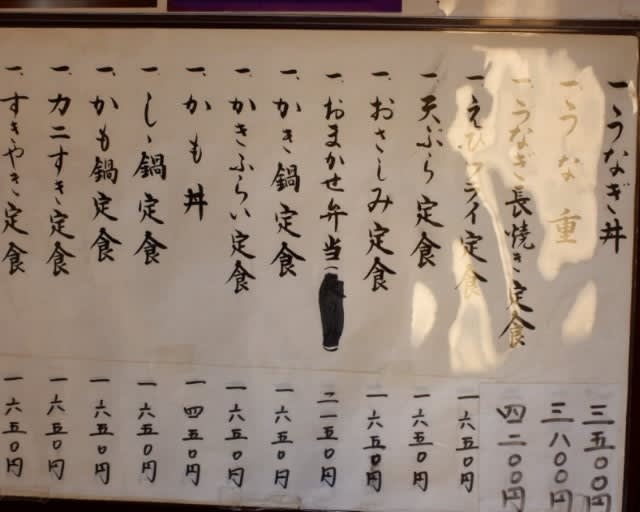 一、うなぎ丼
一、うな重
一、うなぎ長焼き定食
一、えびフライ定食
一、天ぷら定食
一、おさしみ定食
一、おまかせ弁当(
一、かき鍋定食
一、かきふらい定食
一、かも丼
一、しゝ鍋定食
一、かも鍋定食
一、カニすき定食
一、すきやき定食
三五〇〇円
三八〇〇円
四二〇〇円
一六五〇円
一六五〇円
一六五〇円
二一五〇円
一六五〇円
一六五〇円
一四五〇円
一六五〇円
一六五〇円
一六五〇円
一六五〇円